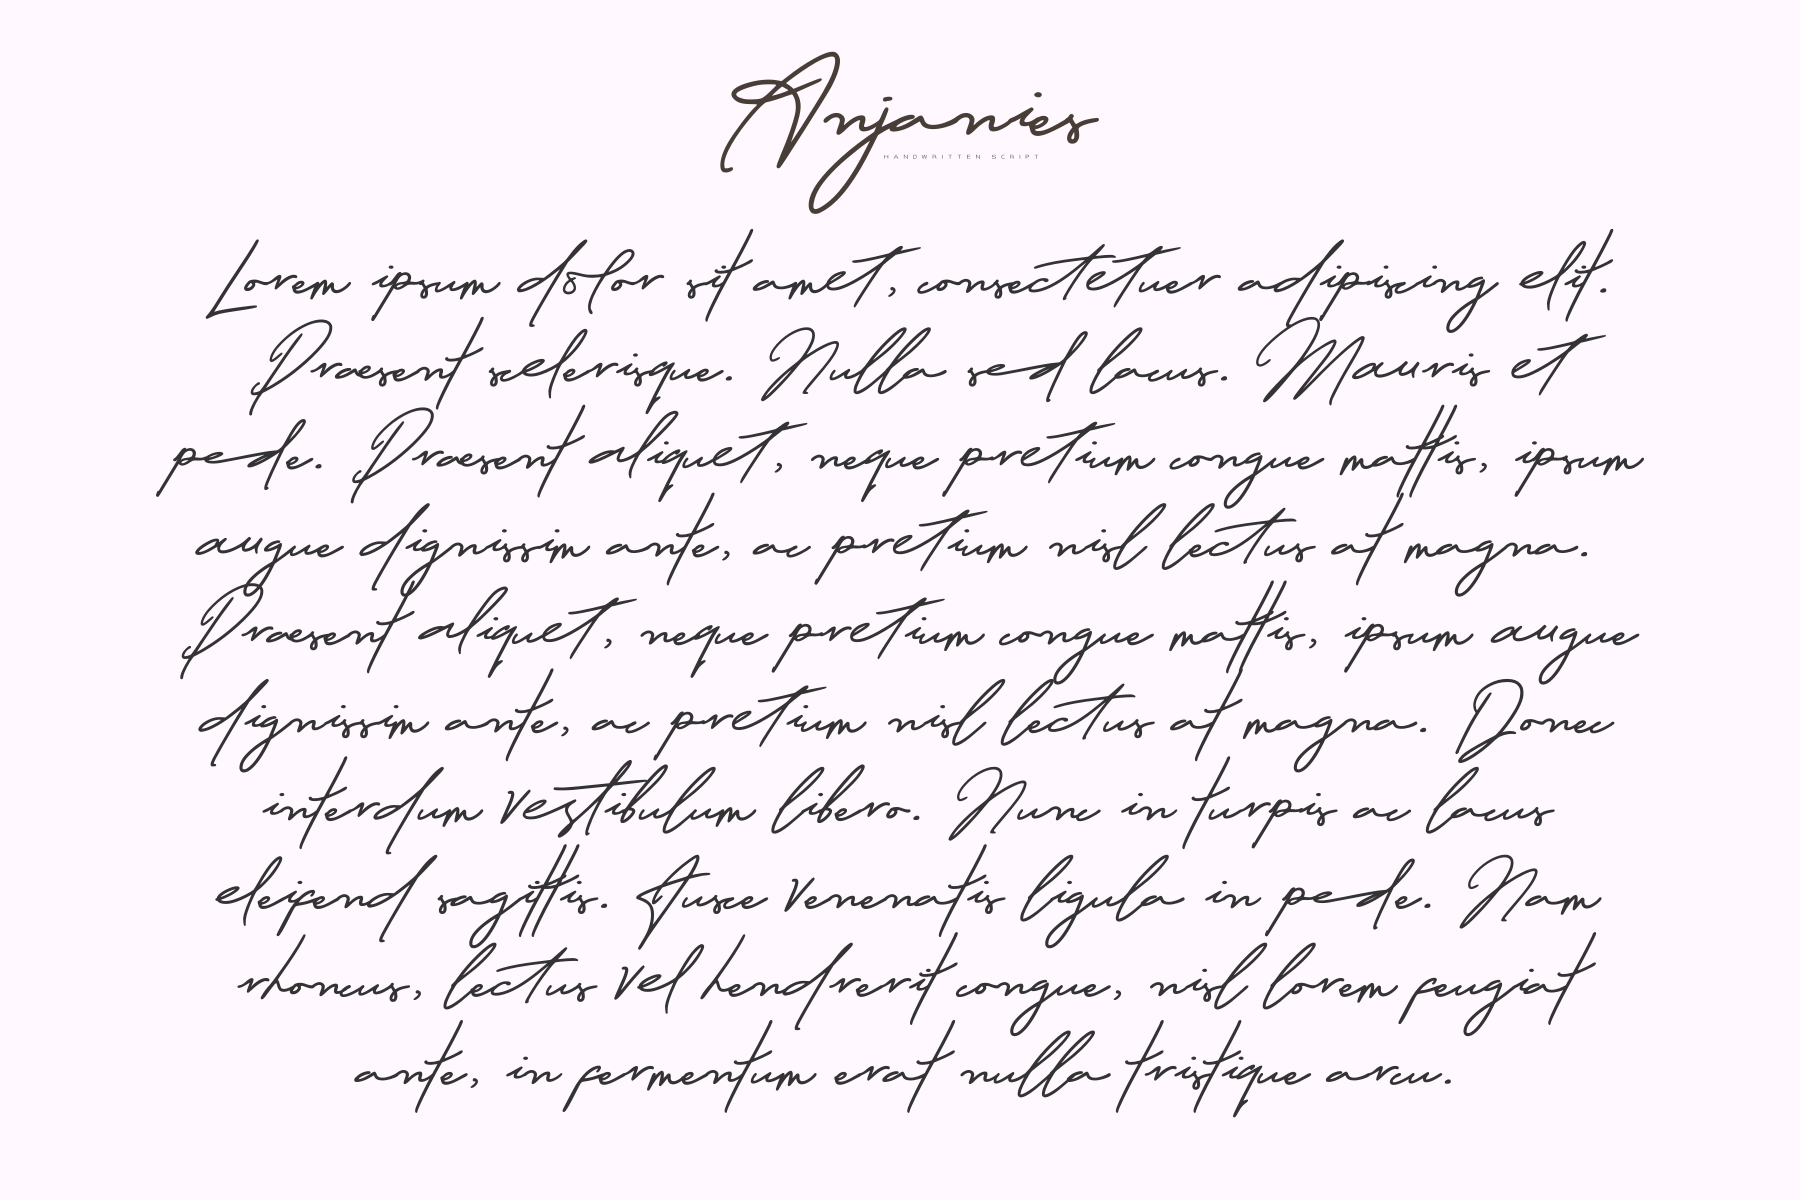 Anjanies
HANDWRITTEN SCRIPT
Lorem ipsum dolor sit amet, consectetuer adipiscing elit.
Praesent scelerisque. Nulla sed lacus. Mauris et
pede. Praesent aliquet, neque pretium congue mattis, ipsum
augue dignissim ante, ac pretium nisl lectus at magna.
Praesent aliquet, neque pretium congue mattis, ipsum augue
dignissim ante, ac pretium nisl lectus at magna. Donec
interdum vestibulum libero. Nunc in turpis ac lacus
eleifend sagittis. Fusce venenatis ligula in pede. Nam
rhoncus, lectus vel hendrerit congue, nisl lorem feugiat
ante, in fermentum erat nulla tristique arcu.